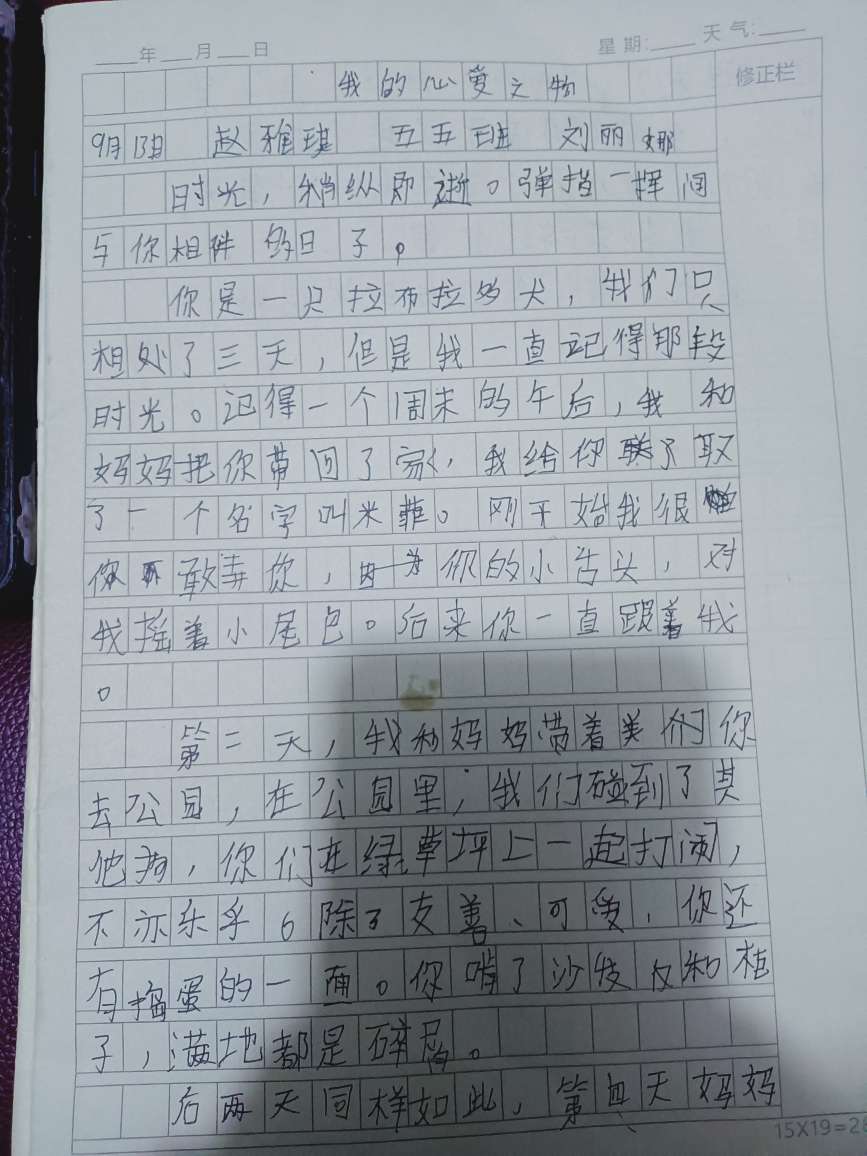 年 月 日 星期: 天气:
我的心爱之物 修正栏
9月13日 赵雅琪 五五班 刘丽娜
时光，稍纵即逝。弹指一挥间
与你相伴的日子。
你是一只拉布拉多犬，我们只
相处了三天，但是我一直记得那段
时光。记得一个周末的午后，我和
妈妈把你带回了家，我给你取
了一个名字叫米菲。刚开始我很
你不敢弄你，因为你的小舌头，对
我摇着小尾巴。后来你一直跟着我
。
第二天，我和妈妈带着你
去公园，在公园里，我们碰到了其
他狗，你们在绿草坪上一起打闹，
不亦乐乎。除了友善、可爱，你还
有捣蛋的一面。你啃了沙发和柜
子，满地都是碎屑。
后两天同样如此，第四天妈妈
15X19=28